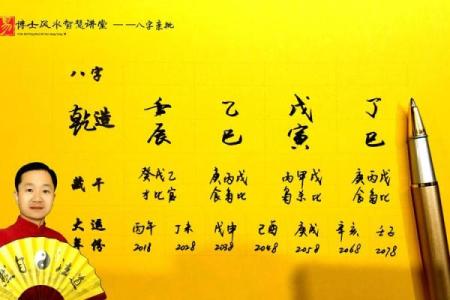 易 博士风水智慧讲堂 ——八字亲批
八字
乾造
壬 乙 戊 丁
辰 巳 寅 巳
藏干
癸戊乙 庚丙戊 丙甲戊 庚丙戊
才比官 食枭比 枭杀比 食枭比
大运 丙午 丁未 戊申 己酉 庚戌 辛亥 壬子
年份 2018 2028 2038 2048 2058 2068 2078